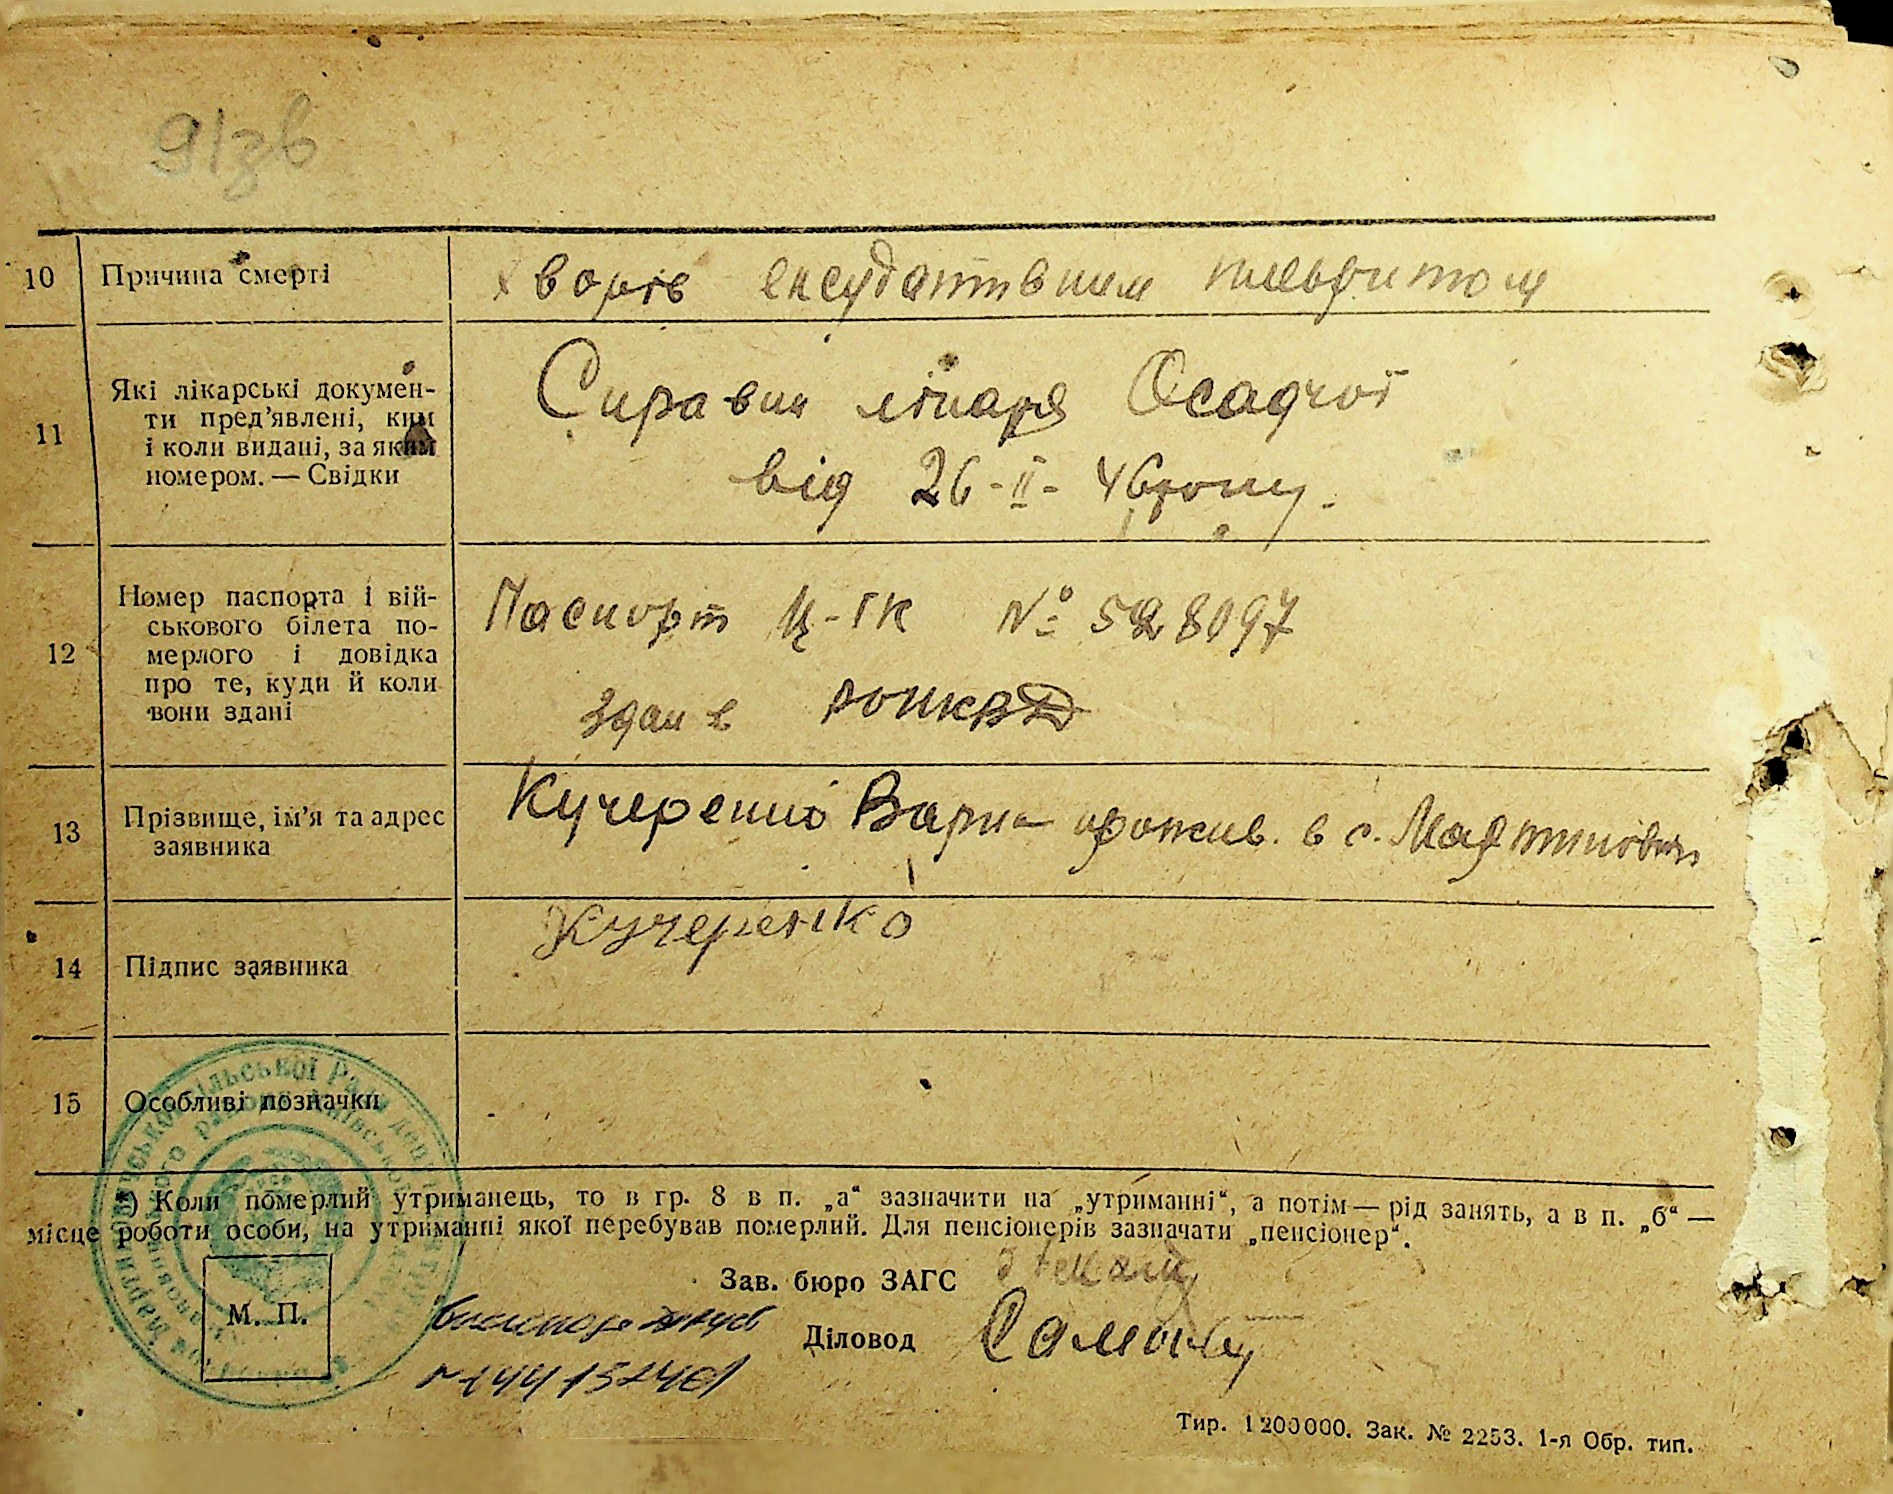 91зв
10 Причина смерті хворів ексудативним плевритом
11 Які лікарські докумен-
ти пред’явлені, ким
і коли видані, за яким
номером. — Свідки
Справки лікаря Осадчої
від 26-ІІ-46 року.
12 Номер паспорта і вій-
ськового білета по-
мерлого і довідка
про те, куди й коли
вони здані
Паспорт № 528097
здан в РОНКВД
13 Прізвище, ім’я та адрес
заявника
Кучеренко прожив. в с.
14 Підпис заявника Кучеренко
15 Особливі позначки
*) Коли померлий утриманець, то в гр. 8 в п. „а“ зазначити на „утриманні“, а потім — рід занять, а в п. „б“ —
місце роботи особи, на утриманні якої перебував померлий. Для пенсіонерів зазначати „пенсіонер“.
Зав. бюро ЗАГС
М. П.
Діловод
Тир. 1200000. Зак. № 2253. 1-я Обр. тип.